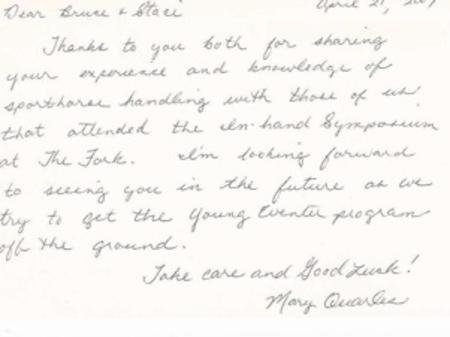 Dear Bruce & Staci April 21,
Thanks to you both for sharing
your experience and knowledge of
sporthorse handling with those of us
that attended the In-hand Symposium
at The Fork. I'm looking forward
to seeing you in the future as we
try to get the Young Eventer program
off the ground.
Take care and Good Luck!
Mary Quarles